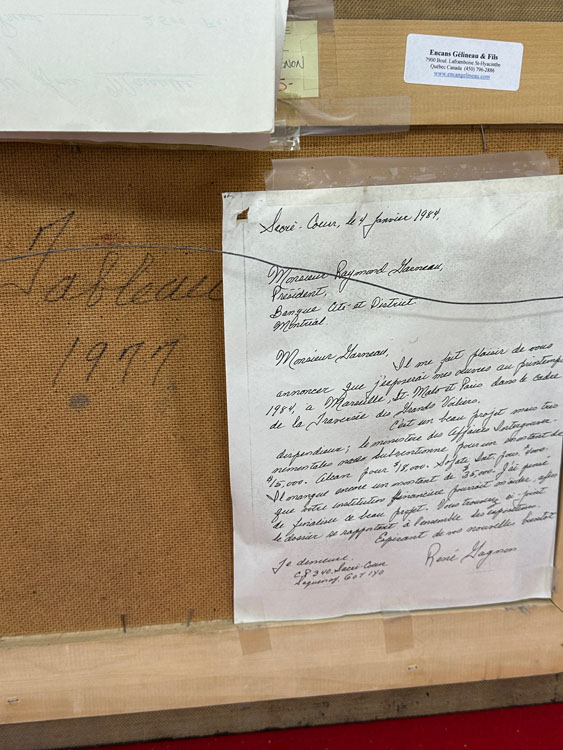 2500
NON
Encans Gélineau & Fils
7900 Boul. Laframboise St-Hyacinthe
Québec Canada (450) 796-2886
www.encangelineau.com
Tableau
1977
Sacré-Coeur, le 4 Janvier 1984,
Monsieur Raymond Garneau,
Président,
Banque Cité et District
Montréal.
Monsieur Garneau,
Il me fait plaisir de vous
annoncer que j'exposerai mes oeuvres au printemps
1984, à Marseille, St. Malo et Paris dans le cadre
de la Traversée des Grands Voiliers.
C'est un beau projet mais très
dispendieux; le ministère des Affaires Intergouver-
nementales nous subventionne pour un montant de
$15,000. Alcan pour $18,000.
Il manque encore un montant de $35,000. J'ai pensé
que votre institution financière pourrait m'aider, afin
de finaliser ce beau projet. Vous trouverez ci-joint
le dossier se rapportant à l'ensemble des expositions.
Espérant de vos nouvelles bientôt
Je demeure.
René Gagnon
C.P. 340, Sacré-Coeur
Saguenay, G0T 1Y0